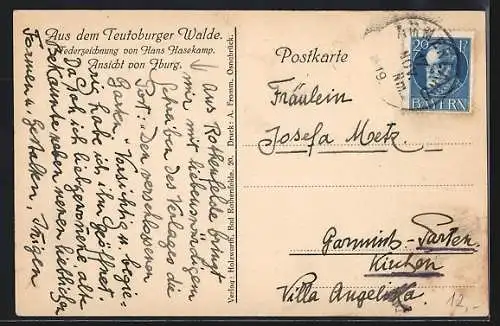 Aus dem Teutoburger Walde.
Federzeichnung von Hans Hasekamp.
Ansicht von Iburg.
Verlag: Holzwarth, Bad Rothenfelde. 20. Druck: A. Fromm, Osnabrück.
Aus Rothenfelde bringt
mir mit liebenswürdigem
Schreiben des Verlages die
Post: Den verschlossenen
Garten. Vorsichtig u. begie-
rig habe ich ihn geöffnet
Da sah ich liebgewonnene alte
Bekannte neben neuen lieblichen
Formen u. Gestalten.
Postkarte
20 Pf
BAYERN
19
Fräulein
Josefa Metz
Garmisch-Parten
Kirchen
Villa Angelika.
12,-